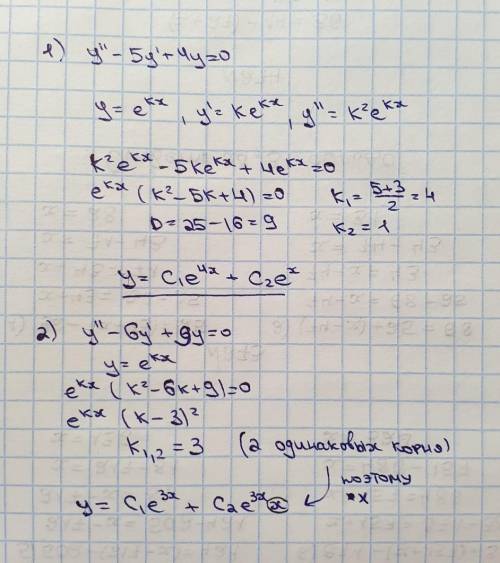 1) y'' - 5y' + 4y = 0
y = e^{kx}, y' = ke^{kx}, y'' = k²e^{kx}
k²e^{kx} - 5ke^{kx} + 4e^{kx} = 0
e^{kx} (k² - 5k + 4) = 0 k₁ = \frac{5+3}{2} = 4
D = 25 - 16 = 9 k₂ = 1
y = C₁e^{4x} + C₂e^{x}
2) y'' - 6y' + 9y = 0
y = e^{kx}
e^{kx} (k² - 6k + 9) = 0
e^{kx} (k - 3)²
k₁,₂ = 3 (2 одинаковых корня)
поэтому
•x
y = C₁e^{3x} + C₂e^{3x} x